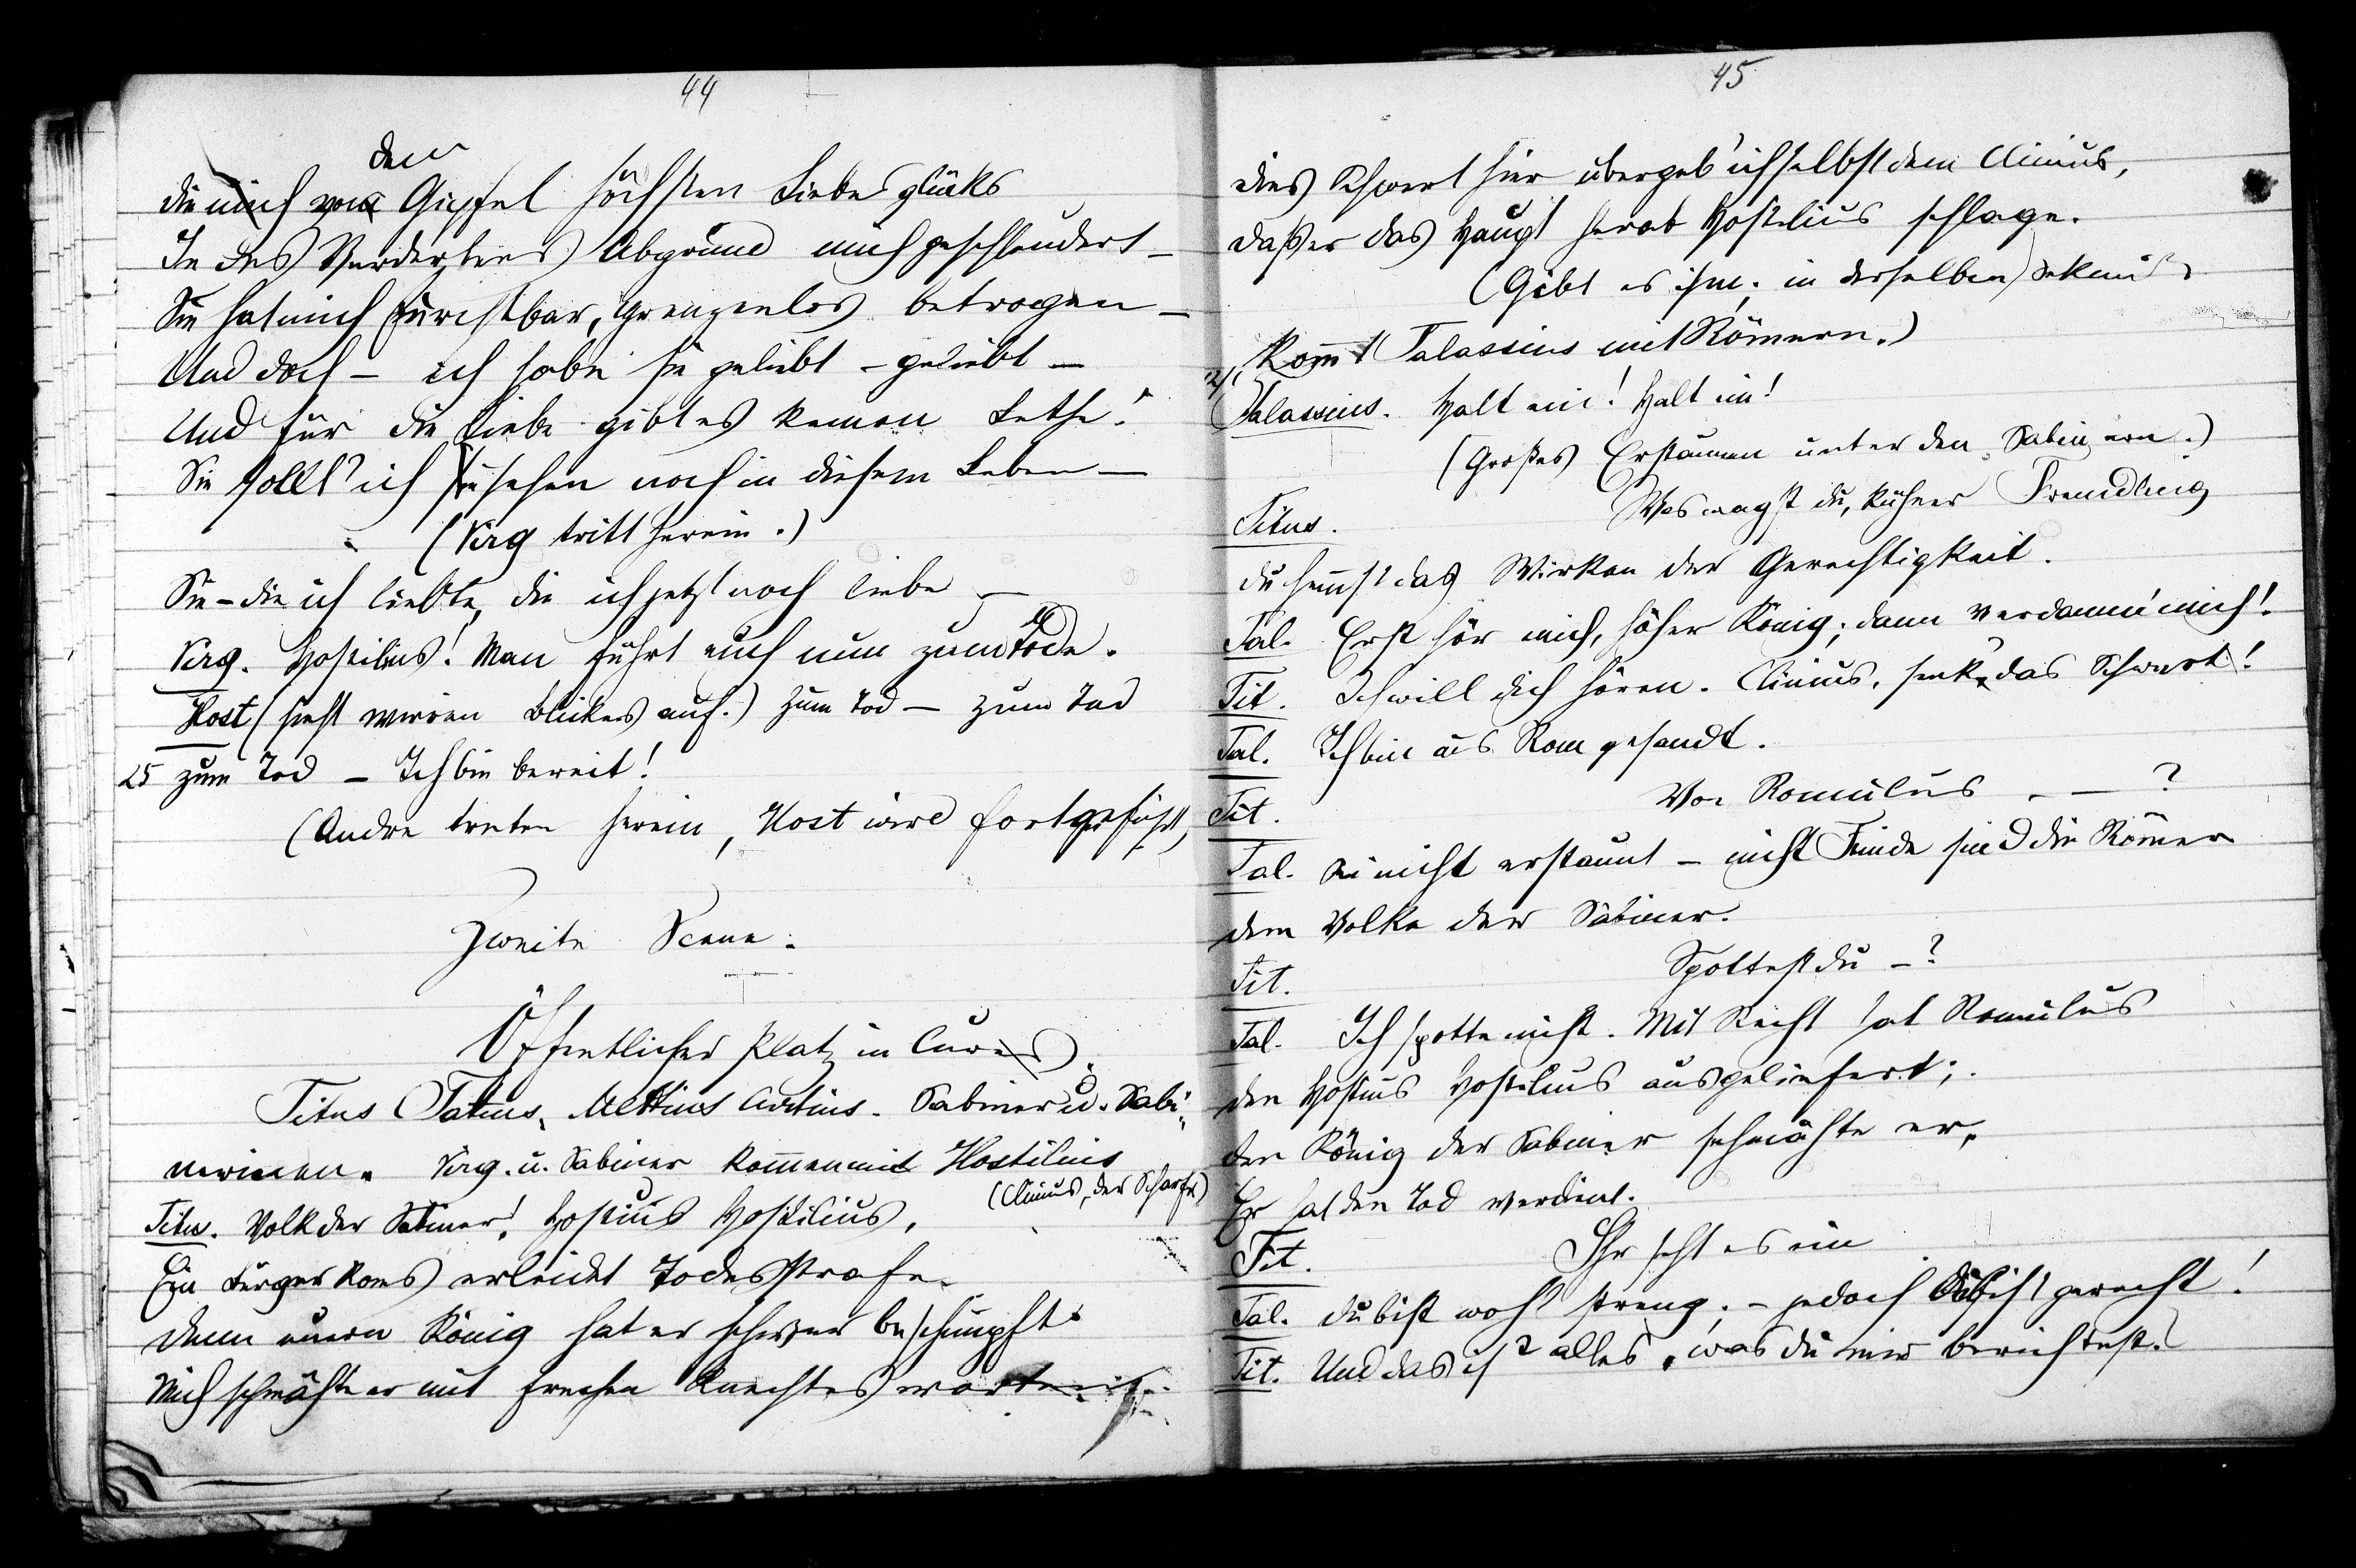 44
dem
die mich vom Gipfel höchsten Liebesglücks
In des Verderbens Abgrund mich geschleudert –
Sie hat mich furchtbar, grenzenlos betrogen –
Und doch – ich habe sie geliebt – geliebt –
Und für die Liebe gibt es keinen Lethe!
Sie sollt' ich sehen noch in diesem Leben –
(Virg tritt herein.)
Sie – die ich liebte, die ich jetzt noch liebe –
Virg. Hostilius! Man führt euch nun zum Tode.
Host (sieht wirren Blickes auf.) Zum Tod – zum Tod
25 zum Tod – Ich bin bereit!
(Andre treten herein, Host wird fortgeführt)
Zweite Scene.
Öffentlicher Platz in Cures.
Titus Tatius, Mettius Curtius. Sabiner u. Sabi-
nerinnen. Virg. u. Sabiner kommen mit Hostilius
(Clinius, der Scharfr)
Titus. Volk der Sabiner! Hostius Hostilius,
Ein Bürger Roms erleidet Todesstrafe.
Denn euern König hat er schwer beschimpft.
Mich schmähte er mit frechen Knechtes
45
dies Schwert hier übergeb' ich selbst dem Clinius,
daß er das Haupt herab Hostilius schlage.
(Gibt es ihm; in derselben Sekunde
kommt Talassius mit Römern.)
Talassius. Halt ein! Halt ein!
(Großes Erstaunen unter den Sabinern.)
Titus. Was wagst du, kühner Fremdling
du hemmst das Wirken der Gerechtigkeit.
Tal. Erst hör mich, hoher König; dann verdamme mich!
Tit. Ich will dich hören. Clinius, senk' das Schwert!
Tal. Ich bin aus Rom gesandt.
Tit. Von Romulus – – ?
Tal. Sei nicht erstaunt – nicht Feinde sind die Römer
dem Volke der Sabiner.
Tit. Spottest du – ?
Tal. Ich spotte nicht. Mit Recht hat Romulus
den Hostius Hostilius ausgeliefert;
den König der Sabiner schmähte er,
Er hat den Tod verdient.
Tit. Ihr seht es ein
Tal. du bist wohl streng, – jedoch du bist gerecht!
Tit. Und das ist alles, was du mir berichtest?